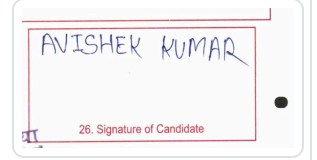 AVISHEK KUMAR
26. Signature of Candidate